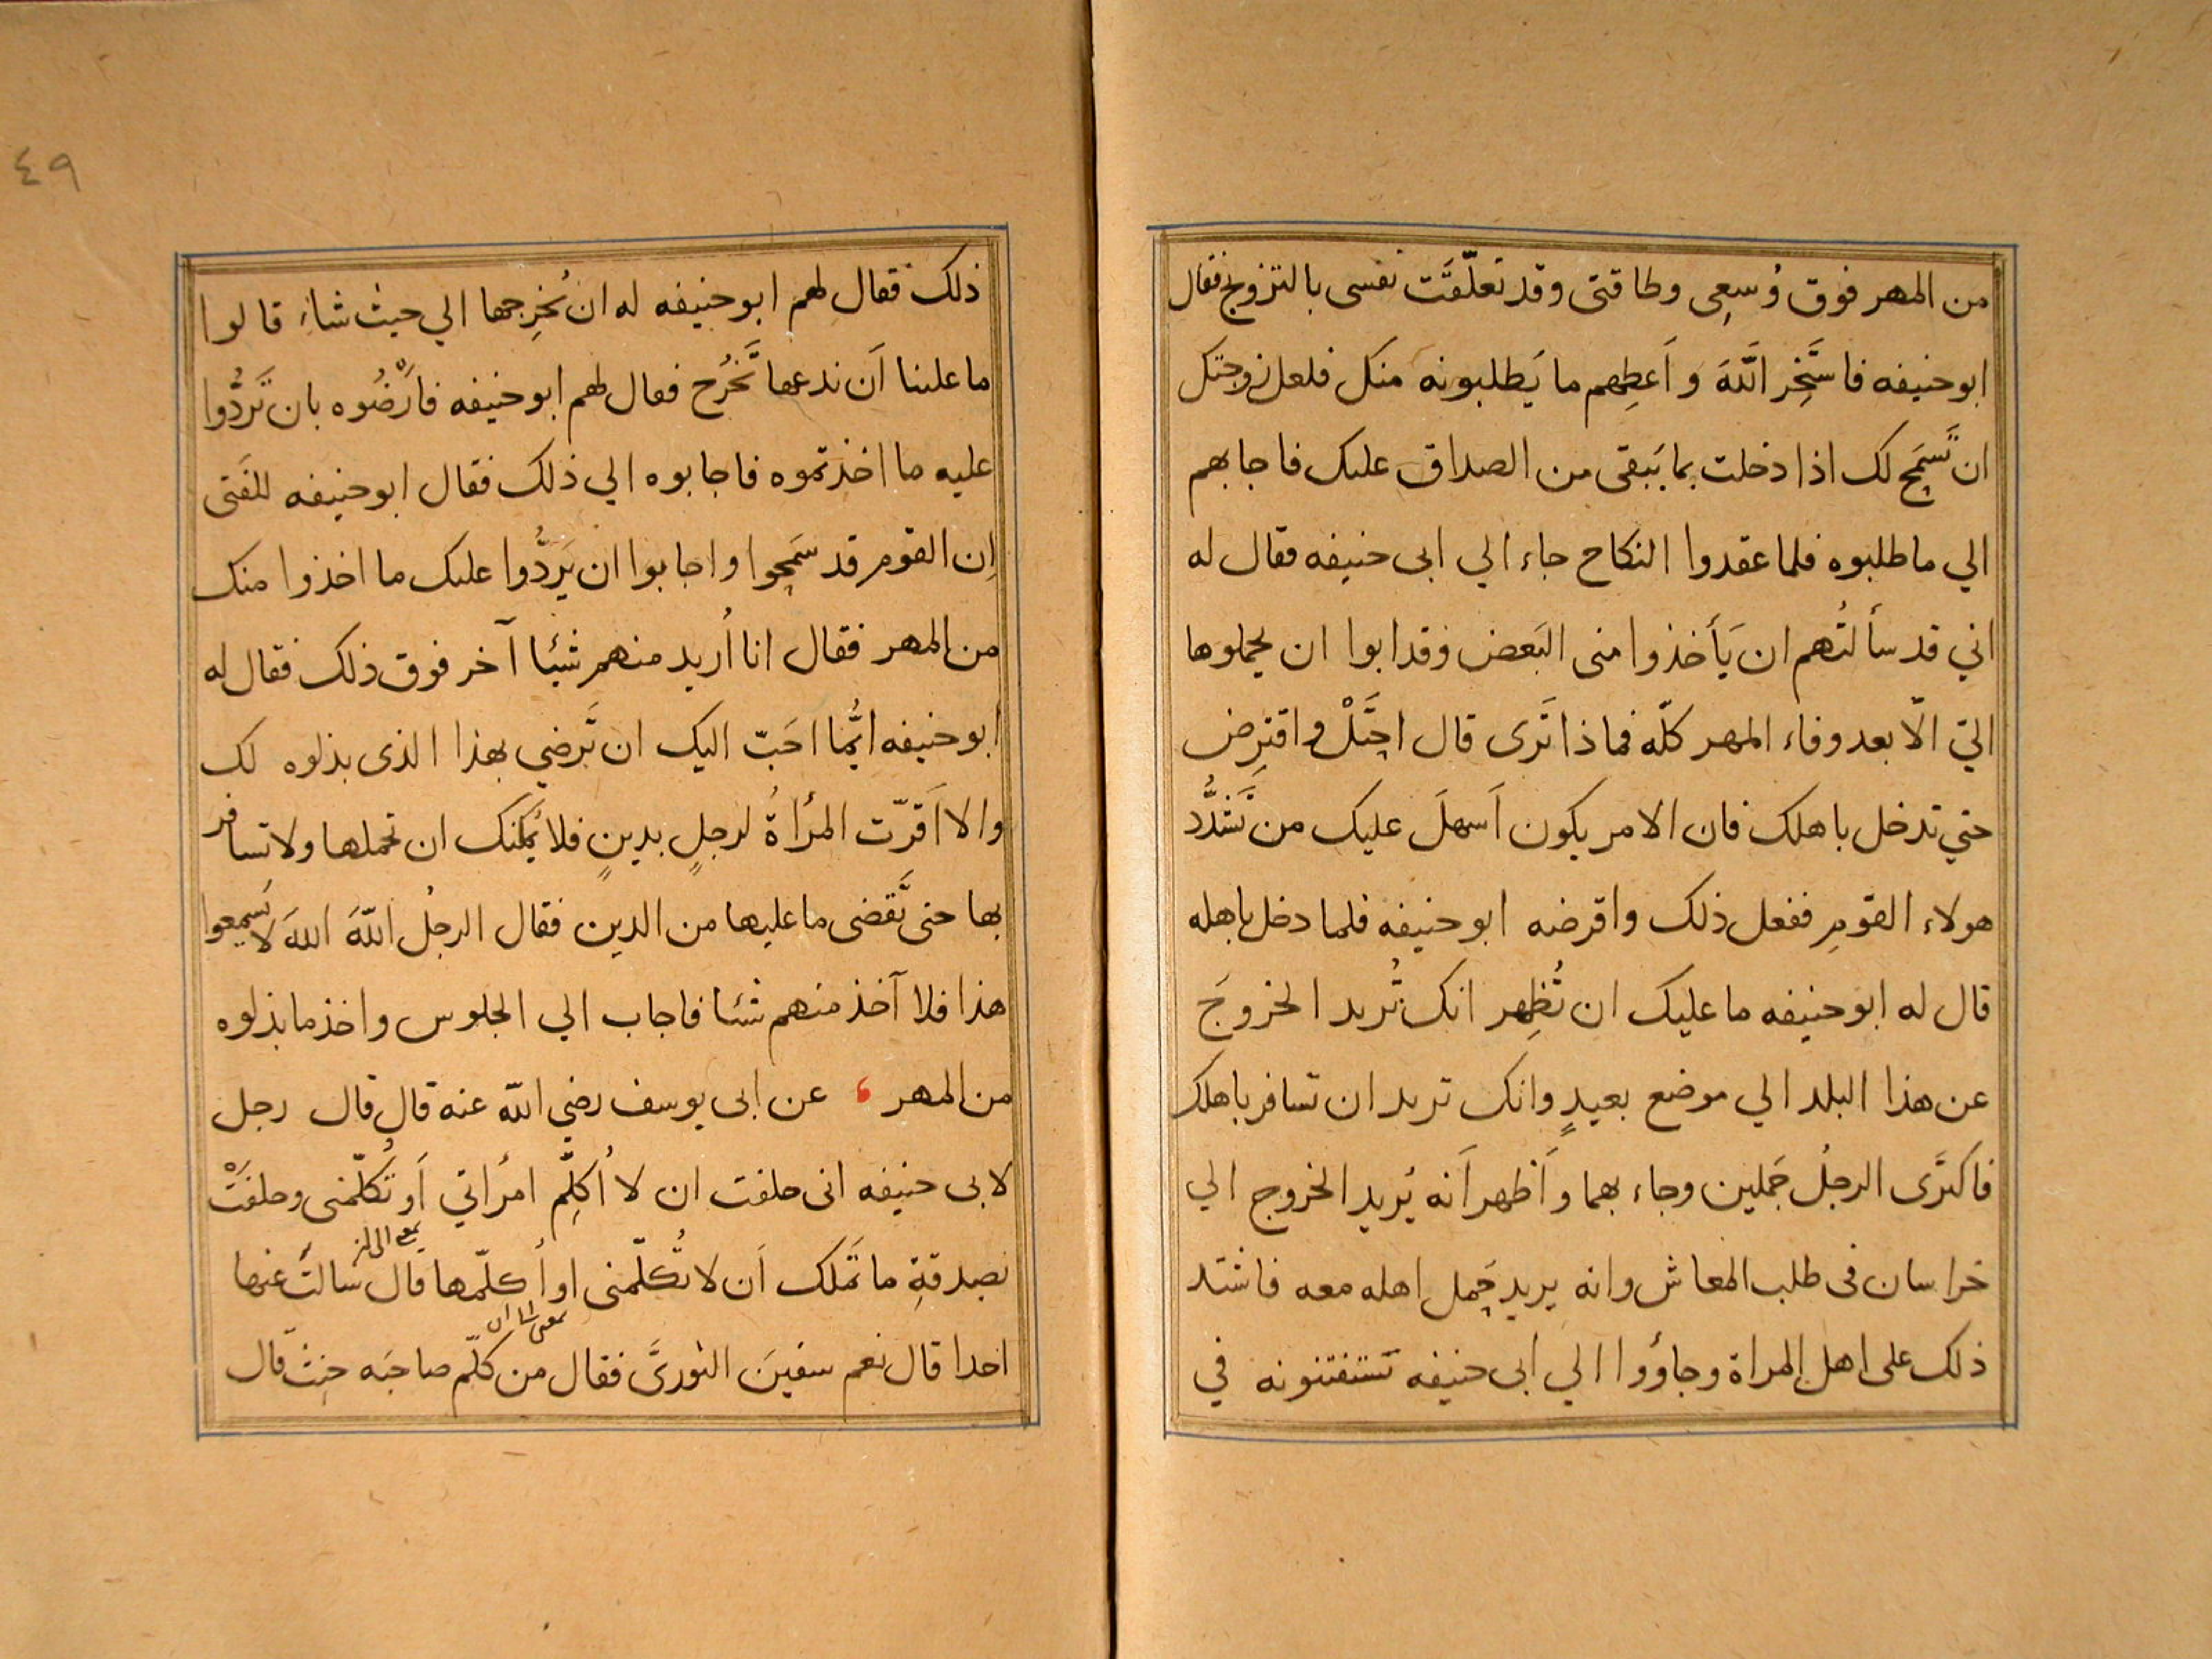 من المهر فوق وُسعِى وطاقتى وقد تعلّقَت نفسى بالتزوج فقال
ابوحنيفه فاستَخِر اللّهَ و اَعطِهم ما يَطلبونه منك فلعل زوجتك
ان تَسمَح لك اذا دخلت بما يَبقى من الصداق عليك فاجابهم
الي ما طلبوه فلما عقدوا النكاح جاء الي ابى حنيفه فقال له
اني قد سألتُهم ان يَأخذوا منى البَعض وقد ابوا ان يحملوها
اليّ الّا بعد وفاء المهر كلّه فماذا تَرى قال احتَلْ واقترِض
حتي تدخل باهلك فان الامر يكون اَسهلَ عليك من تَشَدُّد
هولاء القومِ ففعل ذلك واقرضه ابو حنيفه فلما دخل باهله
قال له ابوحنيفه ما عليك ان تُظهِر انك تُريد الخروجَ
عن هذا البلد الي موضع بعيدٍ وانك تريد ان تسافر باهلك
فاكترَى الرجلُ جَملين وجاء بهما و اَظهر اَنه يُريد الخروج الي
خراسان فى طلب المعاش وانه يريد حَمل اهله معه فاشتد
ذلك على اهل المراة وجاؤوا الي ابى حنيفه يستفتونه في
٤٩
ذلك فقال لهم ابوحنيفه له ان يُخرِجها الي حيث شاء قالوا
ما علينا اَن ندعها تَخرُج فقال لهم ابوحنيفه فارْضُوه بان تَردُّوا
عليه ما اخذتموه فاجابوه الي ذلك فقال ابوحنيفه للفَتى
اِن القوم قد سمَحوا واجابوا ان يَردُّوا عليك ما اخذوا منك
من المهر فقال انا اُريد منهم شيئا آخر فوق ذلك فقال له
ابوحنيفه ايُّما احَبّ اليك ان تَرضي بهذا الذى بذلوه لك
والا اَقرّت المرأةُ لرجلٍ بدينٍ فلا يُمكنك ان تحملها ولا تسافر
بها حتى تَقضى ما عليها من الدين فقال الرجلُ اللّهَ اللهَ لا يَسمعوا
هذا فلا آخذ منهم شيئا فاجاب الي الجلوس واخذ ما بذلوه
من المهر ، عن ابى يوسف رضي اللّه عنه قال قال رجل
لابى حنيفه انى حلفت ان لا اُكلِّم امرأتي اَو تُكلّمنى وحلفَتْ
بصدقةِ ما تَملك اَن لا تُكلّمنى او اُكلّمها قال سالتَ عنها
احدا قال نعم سفينَ الثورىَّ فقال من كلّم صاحبَه حنِث قال